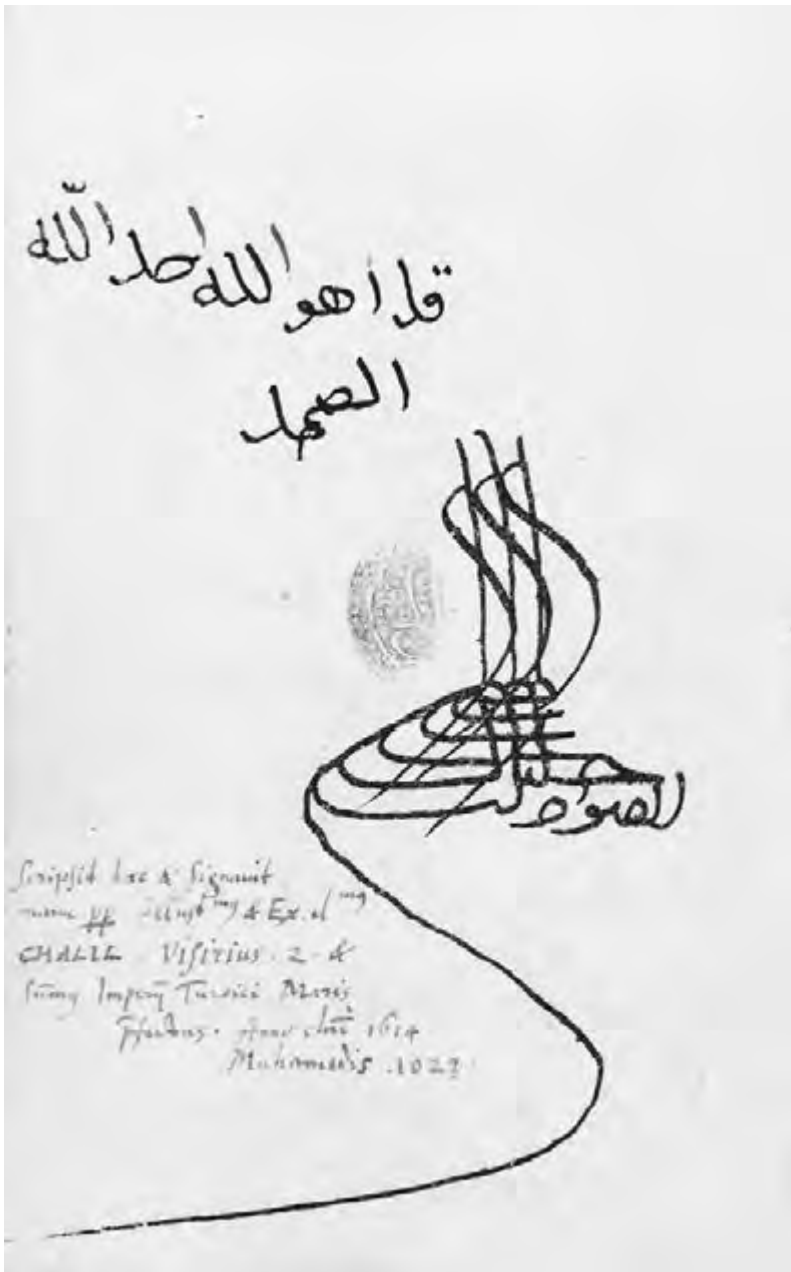 قل هو الله احد الله
الصمد
Scripsit hac & Signauit
manu pp Illust^mg & Ex.el^mg
CHALIL Visirius . 2 . &
Sūmg Imperÿ Turcici Maris
P̄fectus . Anno chri 1614
Muhamedis . 1023